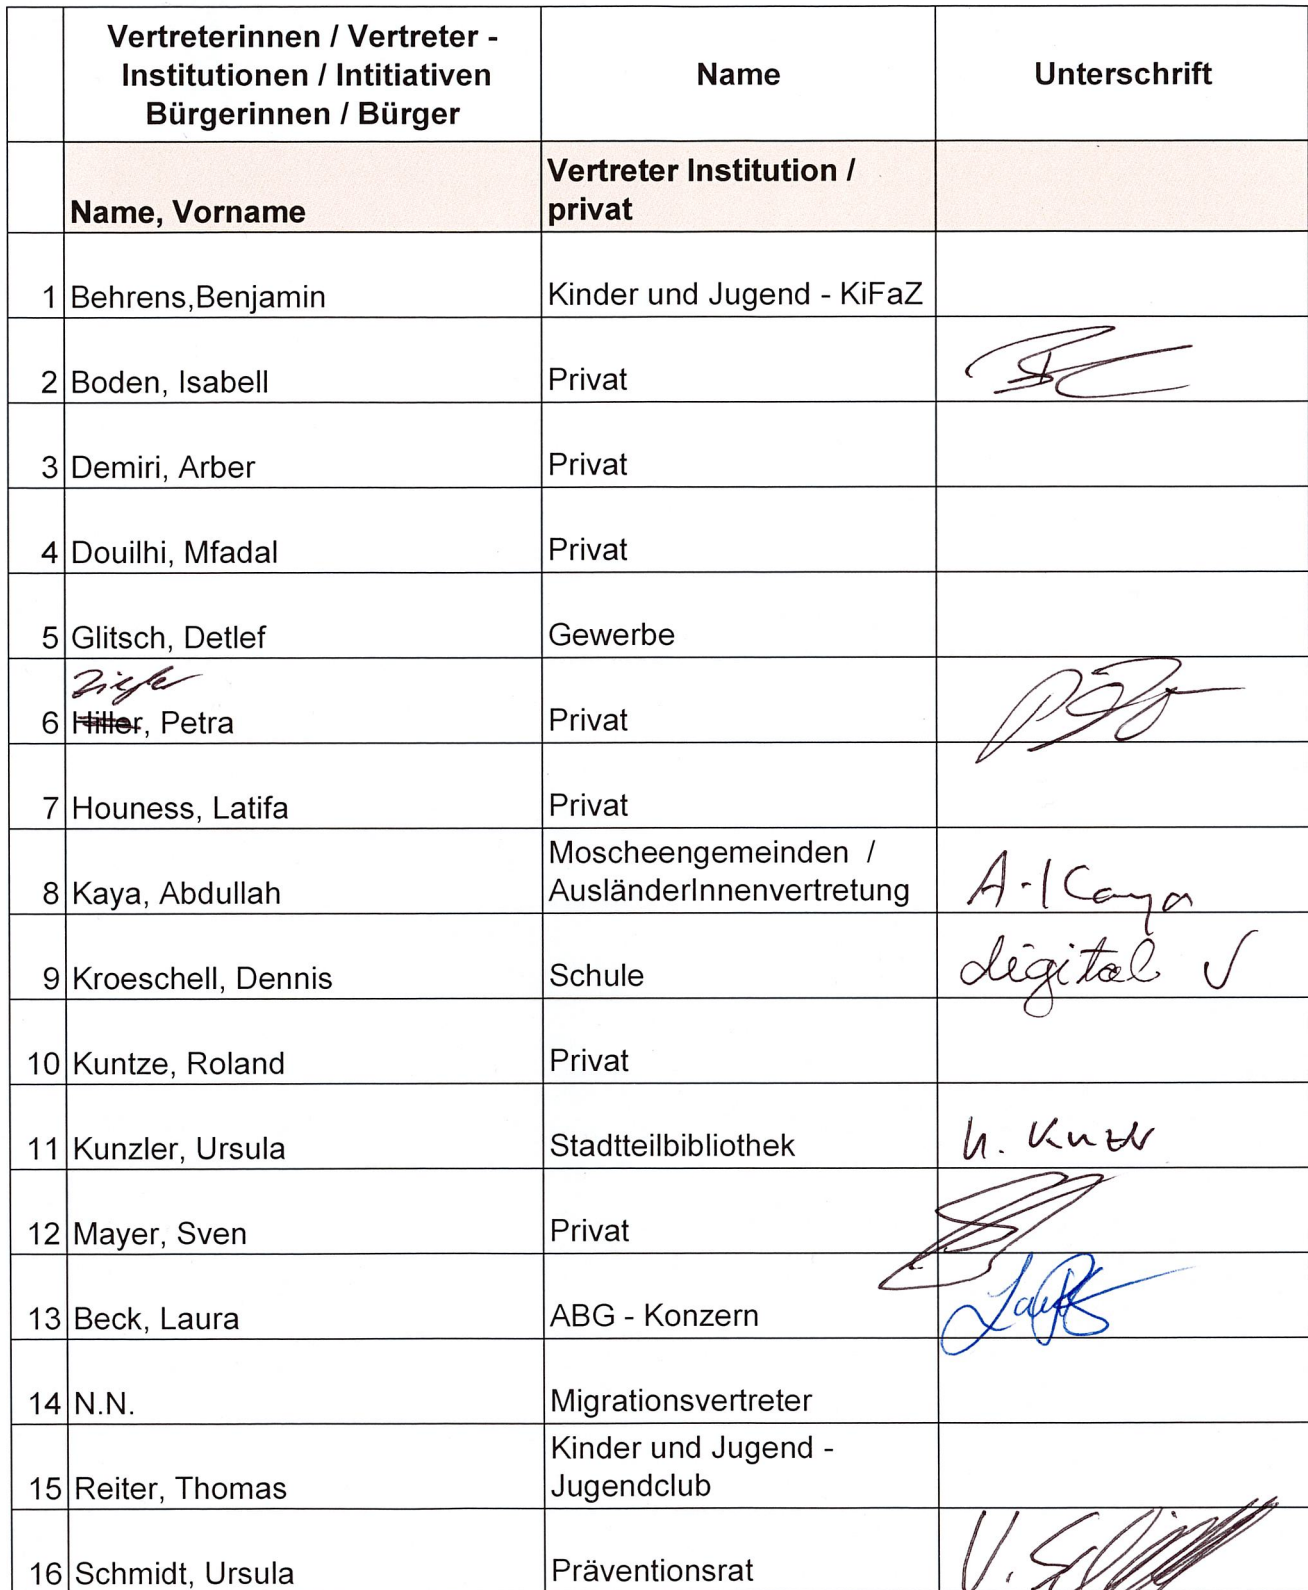 Vertreterinnen / Vertreter -
Institutionen / Intitiativen
Bürgerinnen / Bürger
Name
Unterschrift
Name, Vorname
Vertreter Institution /
privat
1 Behrens,Benjamin Kinder und Jugend - KiFaZ
2 Boden, Isabell Privat
3 Demiri, Arber Privat
4 Douilhi, Mfadal Privat
5 Glitsch, Detlef Gewerbe
Ziegler
6 Hiller, Petra Privat
7 Houness, Latifa Privat
8 Kaya, Abdullah Moscheengemeinden /
AusländerInnenvertretung A. Kaya
9 Kroeschell, Dennis Schule digital ✓
10 Kuntze, Roland Privat
11 Kunzler, Ursula Stadtteilbibliothek U. Kunzler
12 Mayer, Sven Privat
13 Beck, Laura ABG - Konzern
14 N.N. Migrationsvertreter
15 Reiter, Thomas Kinder und Jugend -
Jugendclub
16 Schmidt, Ursula Präventionsrat